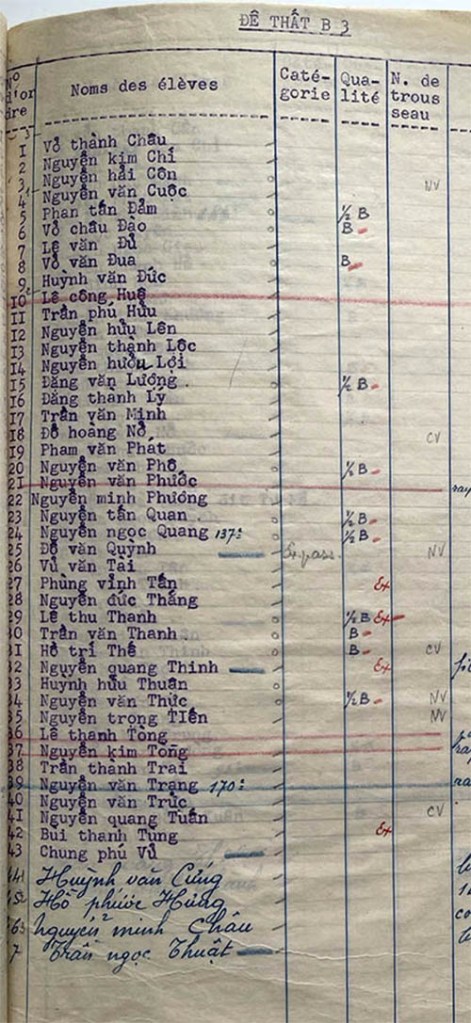 ĐỆ THẤT B 3
Nº d'or dre Noms des élèves Caté- gorie Qua- lité N. de trous seau
1 Võ thành Châu
2 Nguyễn kim Chí
3 Nguyễn hải Côn NV
4 Nguyễn văn Cuộc
5 Phan tấn Đảm ½ B
6 Võ châu Đào B -
7 Lê văn Đủ
8 Võ văn Đua B -
9 Huỳnh văn Đức
10 Lê công Huệ
11 Trần phú Hữu
12 Nguyễn hữu Lên
13 Nguyễn thành Lộc
14 Nguyễn hữu Lợi
15 Đặng văn Lượng ½ B -
16 Đặng thanh Lý
17 Trần văn Minh
18 Đỗ hoàng Nở CV
19 Phạm văn Phát
20 Nguyễn văn Phố ½ B -
21 Nguyễn văn Phước
22 Nguyễn minh Phương
23 Nguyễn tấn Quan ½ B -
24 Nguyễn ngọc Quang 137: ½ B -
25 Đỗ văn Quỳnh Ex pass. NV
26 Vũ văn Tài
27 Phùng vĩnh Tấn Ex
28 Nguyễn đức Thắng
29 Lê thu Thanh ½ B Ex
30 Trần văn Thanh B -
31 Hồ trí Thế B - CV
32 Nguyễn quang Thinh Ex
33 Huỳnh hữu Thuấn
34 Nguyễn văn Thức ½ B - NV
35 Nguyễn trọng Tiến NV
36 Lê thanh Tòng
37 Nguyễn kim Tổng
38 Trần thành Trai
39 Nguyễn văn Trạng 170:
40 Nguyễn văn Trực
41 Nguyễn quang Tuấn CV
42 Bùi thanh Tùng Ex
43 Chung phú Vũ
44 Huỳnh văn Cứng
45 Hồ phước Hùng
46 Nguyễn minh Châu
7 Trần ngọc Thuật